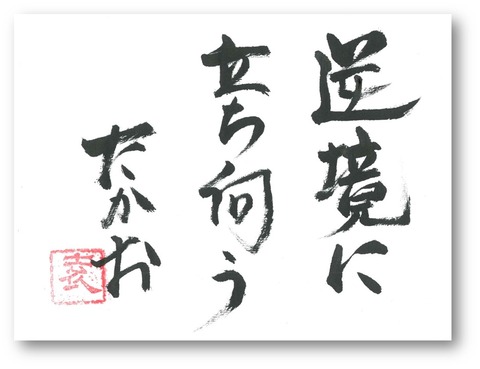 逆境に
立ち向う
たかお